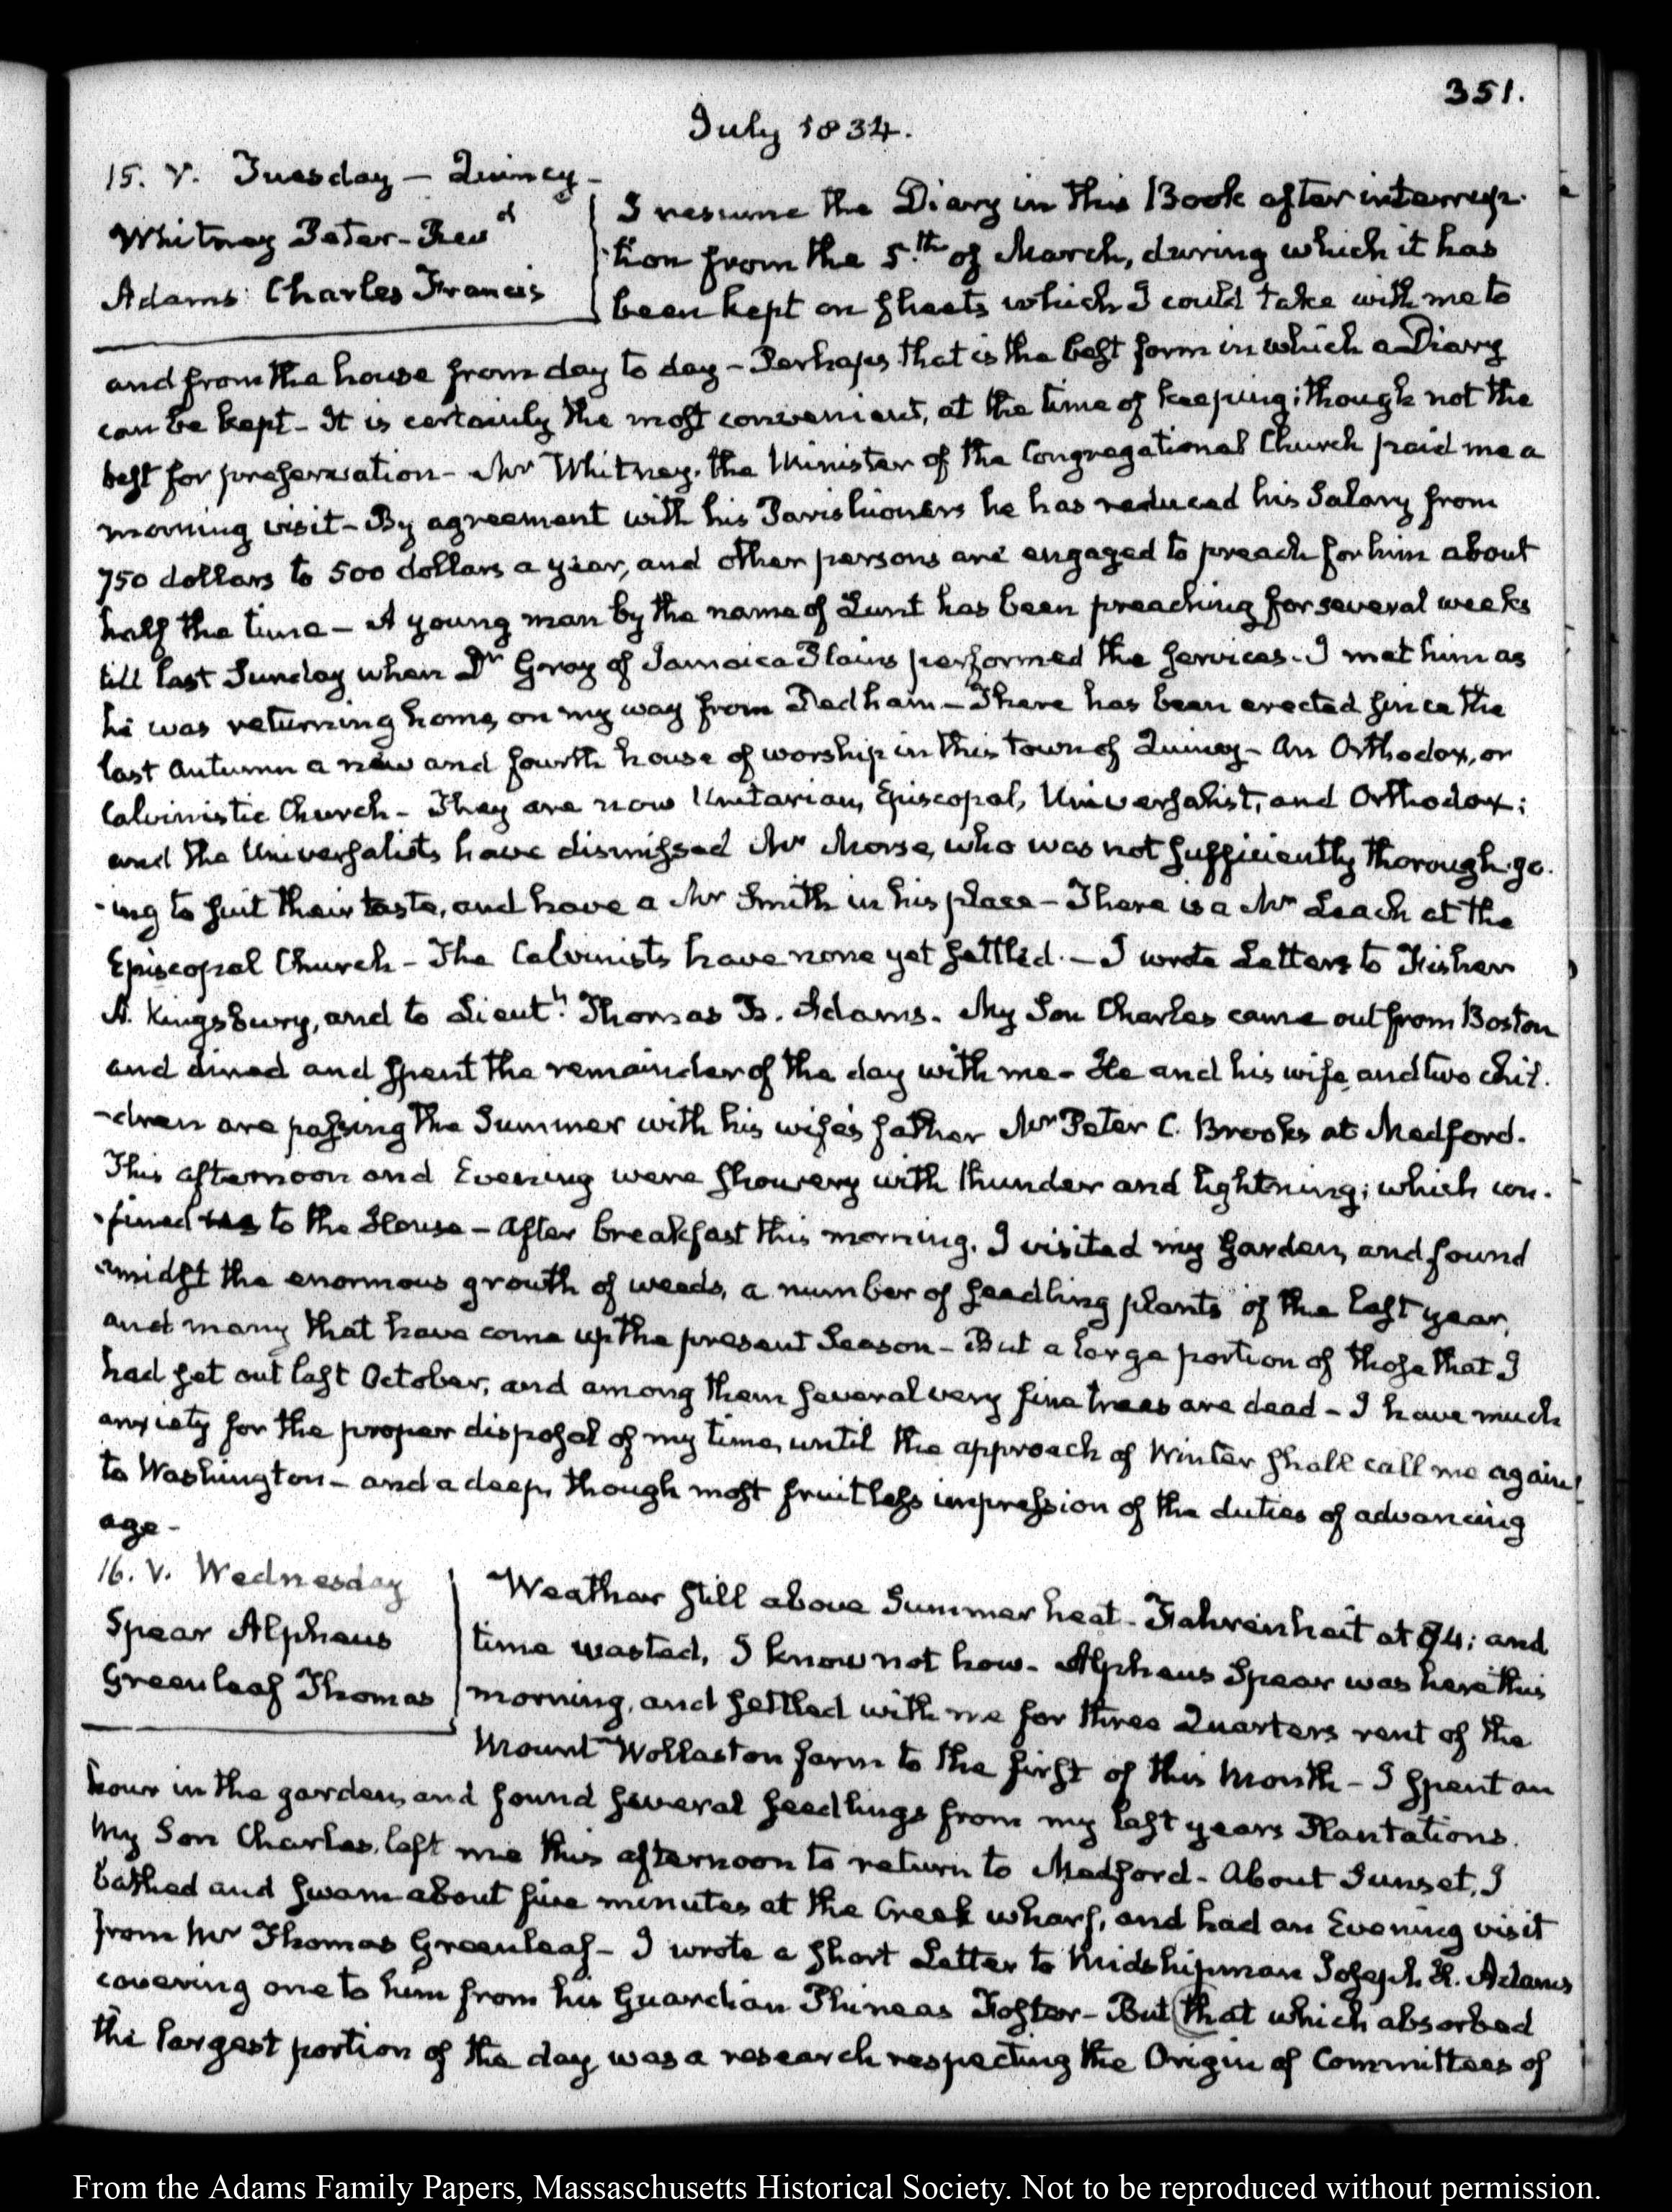 351.
July 1834.
15. V. Tuesday – Quincy –
Whitney Peter – Revd
Adams Charles Francis
I resume the Diary in this Book after interrup-
-tion from the 5.th of March, during which it has
been kept on sheets which I could take with me to
and from the house from day to day – Perhaps that is the best form in which a Diary
can be kept – It is certainly the most convenient, at the time of keeping; though not the
best for preservation – Mr Whitney, the Minister of the Congregational Church paid me a
morning visit – By agreement with his Parishioners he has reduced his Salary from
750 dollars to 500 dollars a year, and other persons are engaged to preach for him about
half the time – A young man by the name of Lunt has been preaching for several weeks
till last Sunday when Dr Gray of Jamaica Plains performed the services – I met him as
he was returning home, on my way from Dedham – There has been erected since the
last Autumn a new and fourth house of worship in this town of Quincy – An Orthodox, or
Calvinistic Church – They are now Unitarian, Episcopal, Universalist, and Orthodox;
and the Universalists have dismissed Mr Morse, who was not sufficiently thorough-go-
-ing to suit their taste, and have a Mr Smith in his place – There is a Mr Leach at the
Episcopal Church – The Calvinists have none yet settled. – I wrote Letters to Fisher
A. Kingsbury, and to Lieutt. Thomas B. Adams. My Son Charles came out from Boston
and dined and spent the remainder of the day with me – He and his wife, and two chil-
-dren are passing the Summer with his wife's father Mr Peter C. Brooks at Medford.
This afternoon and Evening were showery with thunder and lightning; which con-
-fined us to the House – After breakfast this morning, I visited my Garden, and found
amidst the enormous growth of weeds, a number of seedling plants of the last year,
and many that have come up the present Season – But a large portion of those that I
had set out last October, and among them several very fine trees are dead – I have much
anxiety for the proper disposal of my time, until the approach of Winter shall call me again
to Washington – and a deep, though most fruitless impression of the duties of advancing
age –
16. V. Wednesday
Spear Alpheus
Greenleaf Thomas
Weather still above Summer heat – Fahrenheit at 84; and
time wasted, I know not how – Alpheus Spear was here this
morning, and settled with me for three Quarters rent of the
Mount-Wollaston farm to the first of this Month – I spent an
hour in the garden, and found several seedlings from my last years Plantations.
My Son Charles, left me this afternoon to return to Medford – About Sunset, I
bathed and swam about five minutes at the Creek wharf, and had an Evening visit
from Mr Thomas Greenleaf – I wrote a short Letter to Midshipman Joseph H. Adams
covering one to him from his Guardian Phineas Foster – But that which absorbed
the largest portion of the day was a research respecting the Origin of Committees of
From the Adams Family Papers, Massachusetts Historical Society. Not to be reproduced without permission.